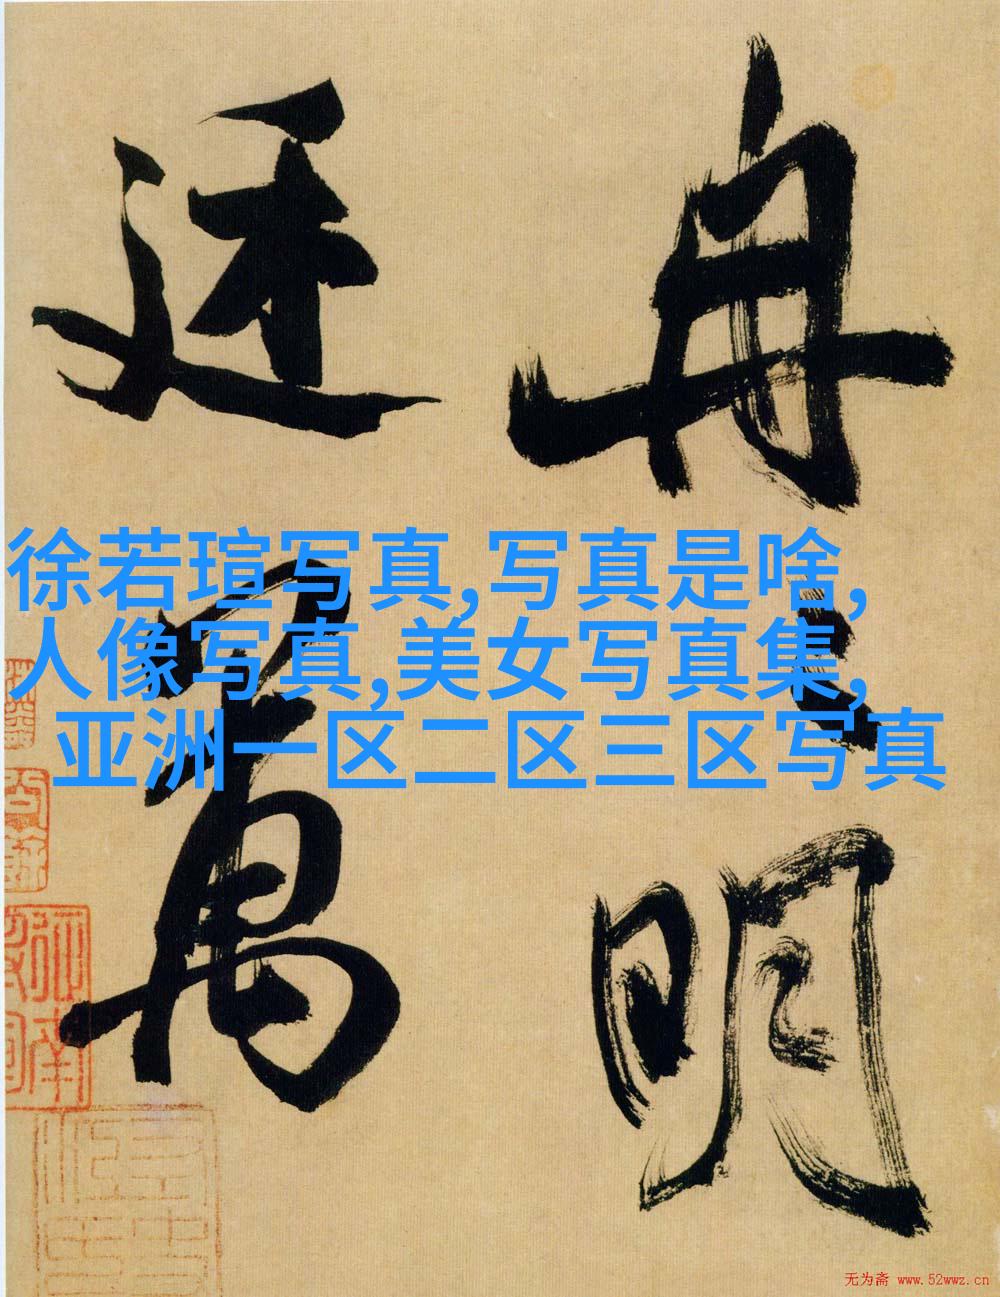 冉々明
廷萬
徐若瑄写真,写真是啥,
人像写真,美女写真集,
亚洲一区二区三区写真
无为斋 www.52wwz.cn